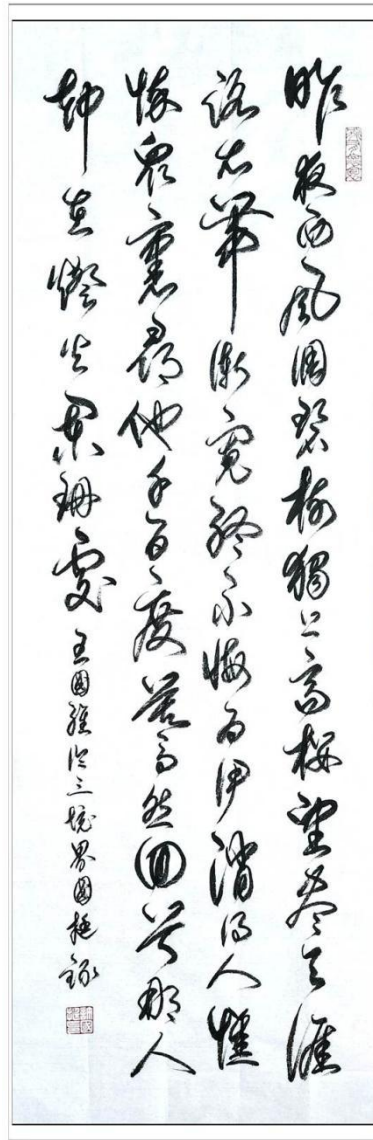 昨夜西風凋碧樹獨上高樓望盡天涯
路衣帶漸寬終不悔為伊消得人憔
悴眾裏尋他千百度驀然回首那人
却在燈火闌珊處 王國維論三境界國挺錄